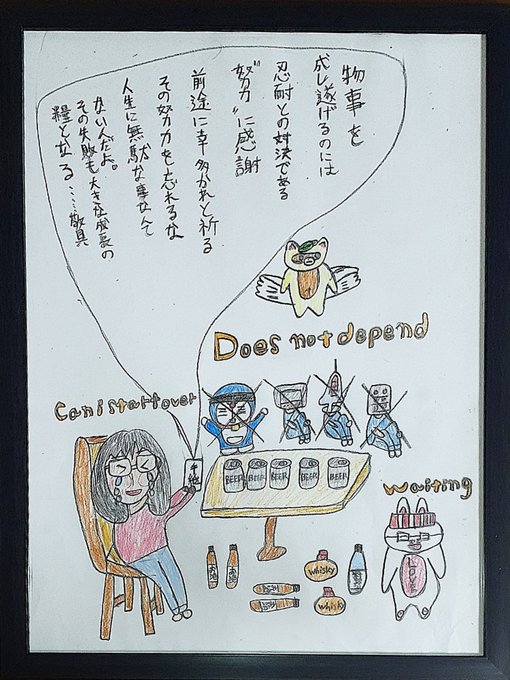 物事を
成し遂げるのには
忍耐との対決である
"努力"に感謝
前途に幸多かれと祈る
その努力を忘れるな
人生に無駄な事なんて
ないんだよ。
その失敗も大きな成長の
糧となる……敬具
Does not depend
Can i start over
手紙
BEER
BEER
BEER
BEER
BEER
waiting
お酒
お酒
whisky
whisky